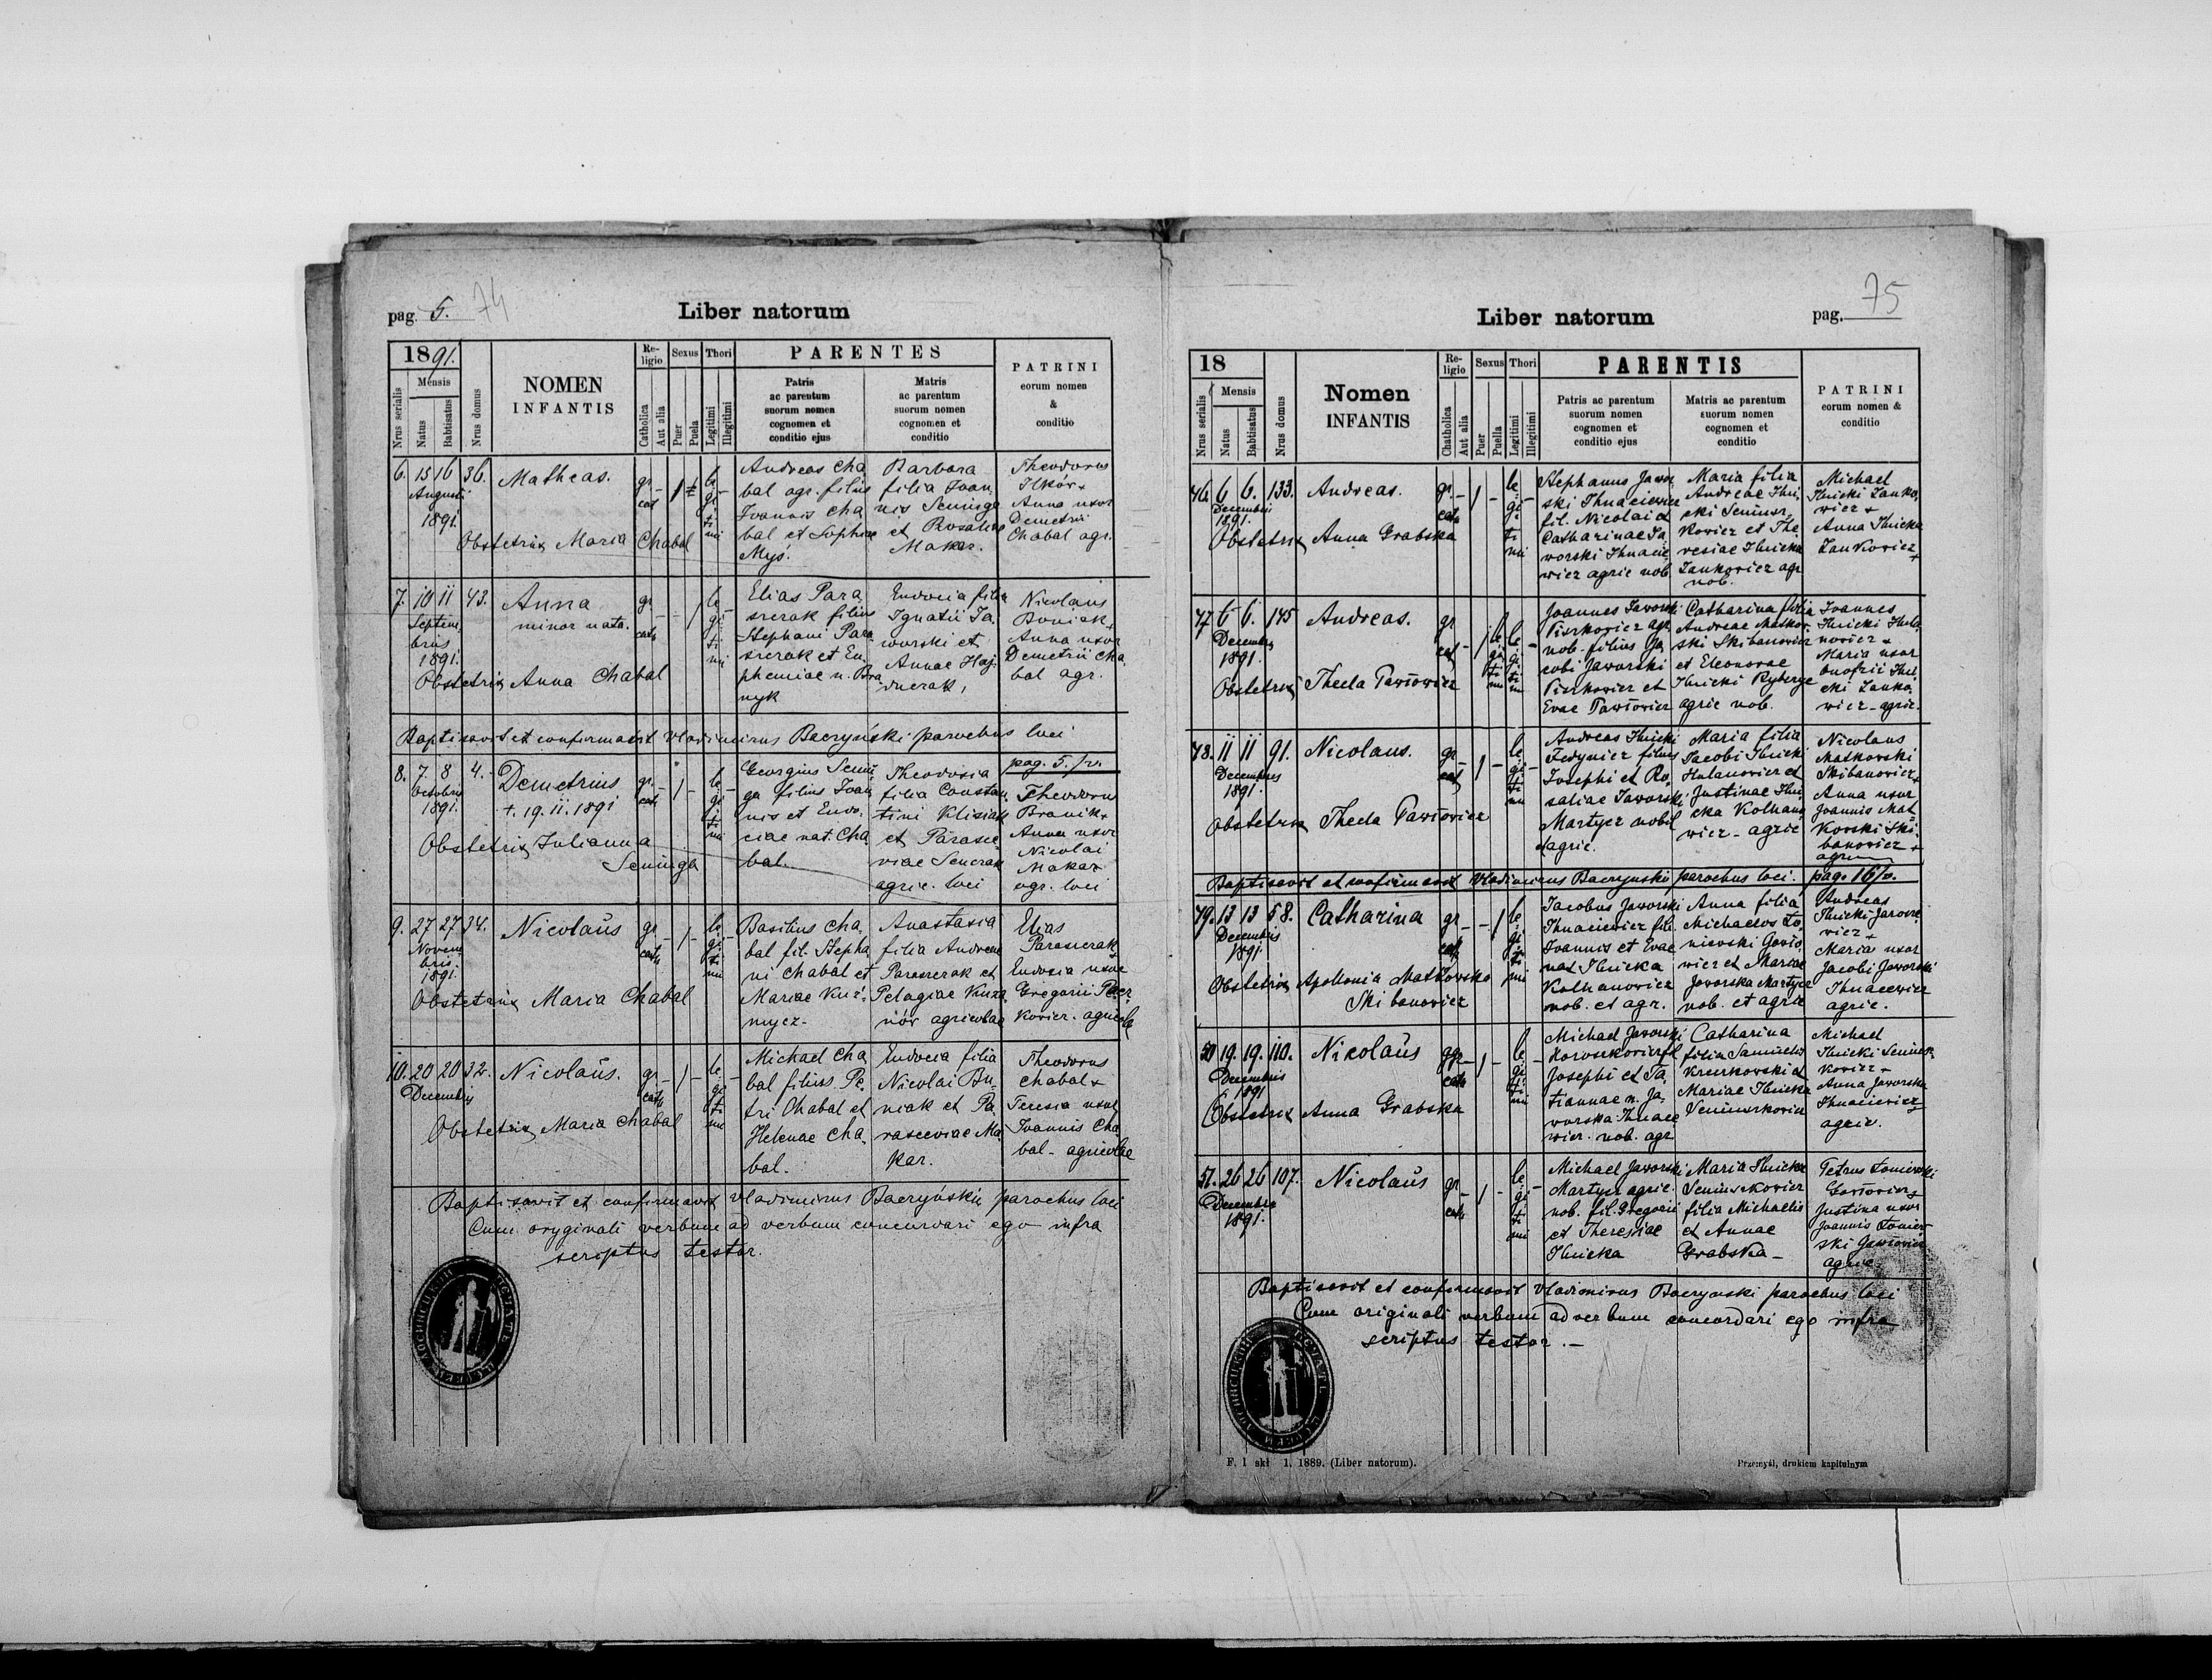 pag. 5. 74
Liber natorum
1891.
Mensis
Nrus serialis
Natus
Babtisatus
Nrus domus
NOMEN
INFANTIS
Re-
ligio
Catholica
Aut alia
Sexus
Puer
Puela
Thori
Legitimi
Illegitimi
PARENTES
Patris
ac parentum
suorum nomen
cognomen et
conditio ejus
Matris
ac parentum
suorum nomen
cognomen et
conditio
PATRINI
eorum nomen
&
conditio
6. 15 16 36.
Augusti
1891.
Matheas.
Obstetrix Maria Chabal
gr.
cat
le
gi
ti
mi
Andreas Cha
bal agr. filius
Joannis Cha
bal et Sophiae
Myś.
Barbara
filia Joan
nis Seninga
et Rosaliae
Makar.
Theodorus
Ilków +
Anna uxor
Demetrii
Chabal agr.
7. 10 11 43.
Septem
bris
1891.
Anna
minor nata.
Obstetrix Anna Chabal
gr.
cath
le
gi
ti
mi
Elias Para
szczak filius
Stephani Para
szczak et Eu
phemiae n. Bra
nyk
Eudocia filia
Ignatii Ja
worski et
Annae Haj
duczak,
Nicolaus
Boniak +
Anna uxor
Demetrii Cha
bal agr.
Baptisavit et confirmavit Vladimirus Baczyński parochus loci
8. 7 8 4.
Octobris
1891.
Demetrius
+. 19. 11. 1891
Obstetrix Julianna
Seninga
gr.
cath
le
gi
ti
mi
Georgius Senin
ga filius Joan
nis et Eudo
ciae nat. Cha
bal.
Theodosia
filia Constan
tini Klisiak
et Parasce
viae Senczak
agric. loci
pag. 5. /v.
Theodorus
Branik +
Anna uxor
Nicolai
Makar
agr. loci
9. 27 27 34.
Novem
bris.
1891.
Nicolaus
Obstetrix Maria Chabal
gr
cath
le
gi
ti
mi
Basilius Cha
bal fil. Stepha
ni Chabal et
Mariae Kuź
mycz.
Anastasia
filia Andreae
Paraszczak et
Pelagiae Kuza
nów agricolae
Elias
Paraszczak
Eudosia uxor
Gregorii
kovicz. agricola
10. 20 20 32.
Decembris
Nicolaus.
Obstetrix Maria Chabal
gr
cath
le
gi
ti
mi
Michael Cha
bal filius Pe
tri Chabal et
Helenae Cha
bal.
Eudocia filia
Nicolai Bu
niak et Pa
rasceviae Ma
kar.
Theodorus
Chabal +
Teresia uxor
Joannis Cha
bal - agricolae
Baptisavit et confirmavit Vladimirus Baczyński parochus loci
Cum oryginali verbum ad verbum concordari ego infra
scriptus testor.
Liber natorum
pag. 75
18
Mensis
Nrus serialis
Natus
Babtisatus
Nrus domus
Nomen
INFANTIS
Re-
ligio
Chatholica
Aut alia
Sexus
Puer
Puella
Thori
Legitimi
Illegitimi
PARENTIS
Patris ac parentum
suorum nomen
cognomen et
conditio ejus
Matris ac parentum
suorum nomen
cognomen et
conditio
PATRINI
eorum nomen &
conditio
46. 6 6. 133.
Decembris
1891.
Andreas.
Obstetrix Anna Grabska
gr.
cath
le
gi
ti
mi
Stephanus Jawor
ski Ihnaciewicz
fil. Nicolai et
Catharinae Ja
worski Ihnacie
wicz agric nob.
Maria filia
Andreae Ilni
cki Seniusz
kovicz et The
resiae Ilnicka
Zankovicz agr
nob.
Michael
Ilnicki Zanko
wicz +
Anna Ilnicka
Zankovicz
47. 6 6. 145
Decembris
1891.
Andreas.
Obstetrix Thecla Pawłowicz
gr
cat
le
gi
ti
mi
Joannes Jaworski
Piszkovicz agr.
nob. filius Ja
cobi Jaworski
Piszkovicz et
Evae Pawłovicz
Catharina filia
Andreae Matkow
ski Skibanovicz
et Eleonorae
Ilnicki Ryberge
agric nob.
Joannes
Ilnicki Hula
novicz +
Maria uxor
Onofrii Ilni
cki Zanko
wicz - agric.
48. 11 11 91.
Decembris
1891.
Nicolaus.
Obstetrix Thecla Pawłovicz
gr
cat
le
gi
ti
mi
Andreas Ilnicki
Fedynicz filius
Josephi et Ro
saliae Jaworski
Martycz nobil
agric.
Maria filia
Jacobi Ilnicki
Hulanovicz et
Justinae Ilni
cka Kolhano
wicz - agric
Nicolaus
Matkowski
Skibanovicz +
Anna uxor
Joannis Mat
kowski Ski
banovicz +
agric
Baptisavit et confirmavit Vladimirus Baczynski parochus loci. pag. 16/v.
49. 13 13 58.
Decembris
1891
Catharina
Obstetrix Apollonia Matkowska
Skibanovicz
gr
cath
le
gi
ti
mi
Jacobus Jaworski
Ihnaciewicz fili
Joannis et Evae
nat Ilnicka
Kolhanovicz
nob. et agr.
Anna filia
Michaelis Ło
niewski Gawło
wicz et Mariae
Jaworska Martycz
nob. et agric
Andreas
Ilnicki Jarosze
wicz +
Maria uxor
Jacobi Jaworski
Ihnacewicz
agric.
50 19. 19. 110.
Decembris
1891
Nicolaus
Obstetrix Anna Grabska
gr
cath
le
gi
ti
mi
Michael Jaworski
Horoszkovicz fil
Josephi et Ta
tiannae n. Ja
worska Ihnace
wicz. nob. agr
Catharina
filia Samuelis
Kruszkowski et
Mariae Ilnicka
Seniuszkovicz
Michael
Ilnicki Seniusz
kovicz +
Anna Jaworska
Ihnaciewicz
agric.
51. 26 26 107.
Decembris
1891.
Nicolaus
gr
cath
le
gi
ti
mi
Michael Jaworski
Martycz agric.
nob. fil. Gregorii
et Theresiae
Ilnicka
Maria Ilnicka
Seniuszkovicz
filia Michaelis
et Annae
Grabska -
Petrus Łoniewski
Gawłovicz +
Justina uxor
Joannis Łoniew
ski Gawłovicz
agric.
Baptisavit et confirmavit Vladimirus Baczynski parochus loci
Cum originali verbum ad verbum concordari ego infra
scriptus testor. -
F. 1 skł 1. 1889. (Liber natorum).
Przemyśl, drukiem kapitulnym